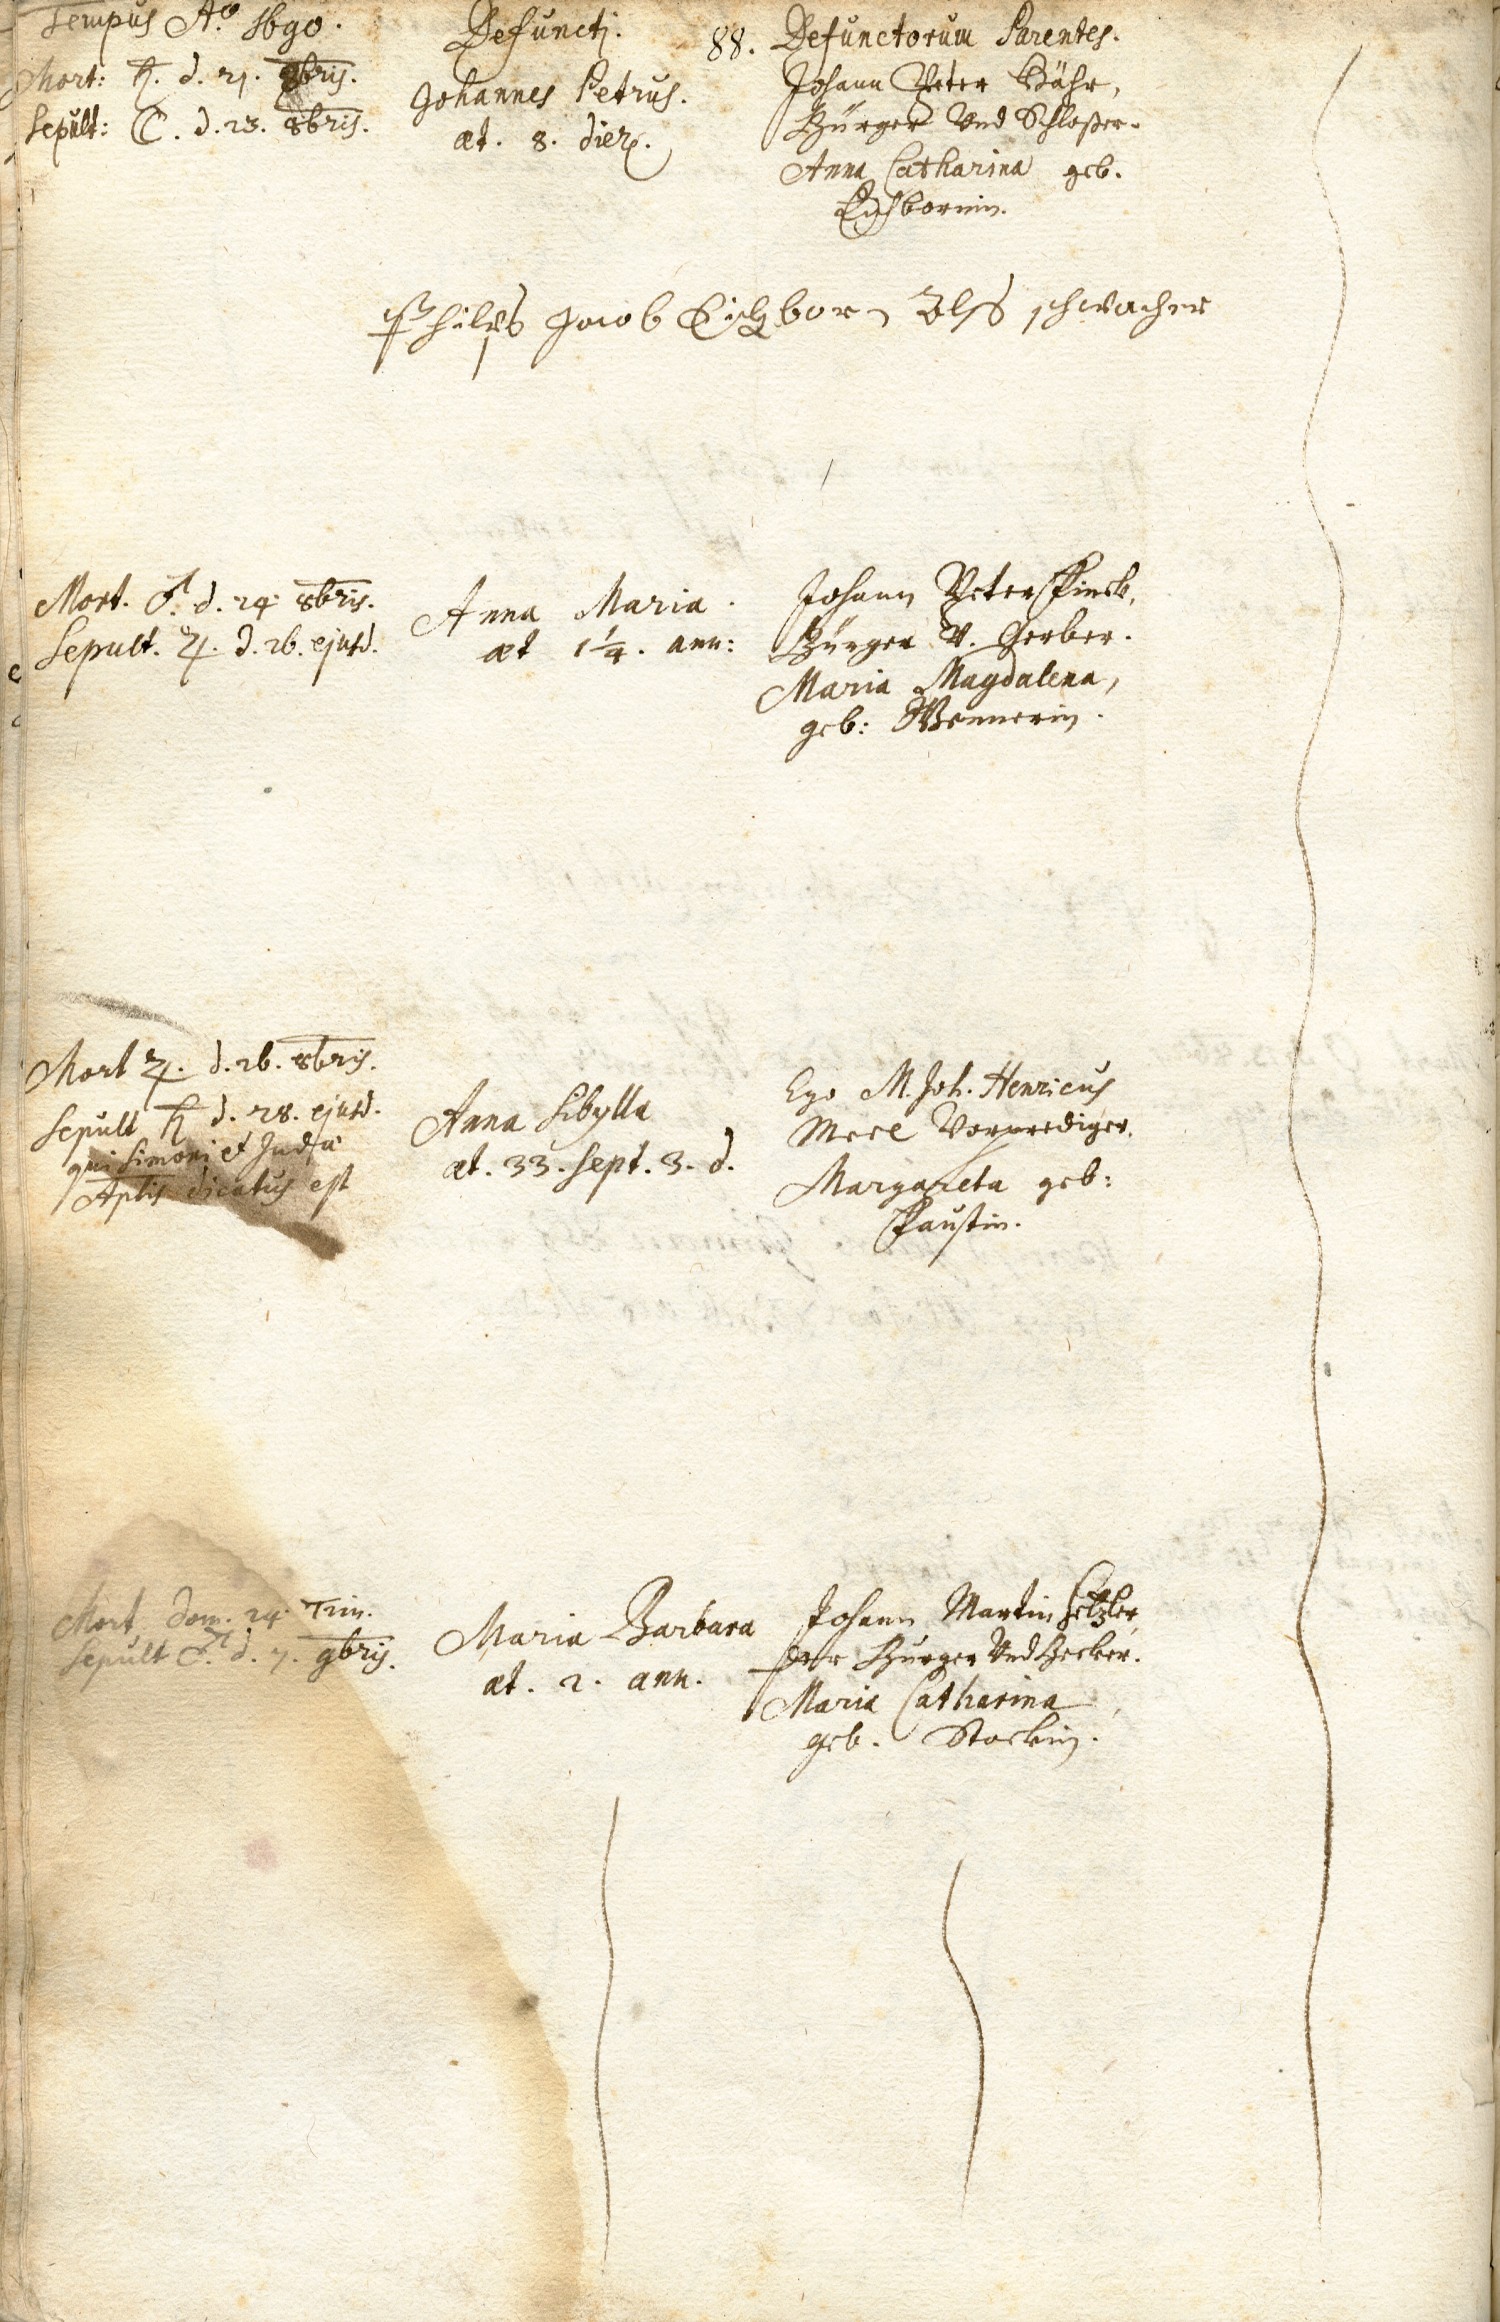 Tempus Aº. 1690.
Defuncti.
88.
Defunctorum Parentes.
Mort: ♄. d. 21. 8bris.
Sepult: ☾. d. 23. 8bris.
Johannes Petrus.
æt. 8. dier.
Johann Peter Bähr,
Bürger Und Schloßer.
Anna Catharina geb.
Eichbornin.
Philips Jacob Eichborn Alss schwacher
Mort. ♂. d. 24. 8bris.
Sepult. ♃. d. 26. ejusd.
Anna Maria.
æt 1¼. ann:
Johann Peter Finck,
Bürger V. Gerber.
Maria Magdalena,
geb:
Mort ♃. d. 26. 8bris.
Sepult ♄ d. 28. ejusd.
qui Simoni et Judæ
Aplis dicatus est
Anna Sibylla
æt. 33. Sept. 3. d.
Ego M. Joh. Henricus
Meel Vorprediger.
Margareta geb:
Faustin.
Mort dom. 24. Trin.
Sepult ♂. d. 7. 9bris.
Maria Barbara
æt. 2. ann.
Johann Martin
Bürger Und Becker.
Maria Catharina
geb. Stockin.